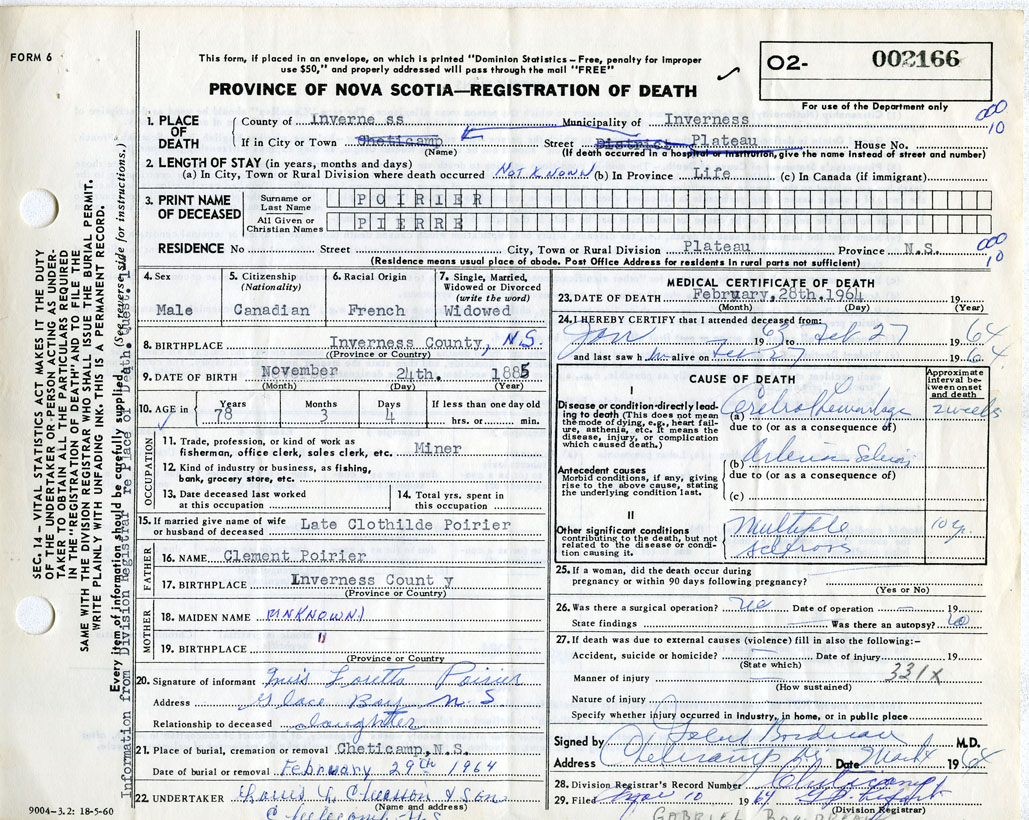 FORM 6
This form, if placed in an envelope, on which is printed "Dominion Statistics – Free, penalty for improper
use $50," and properly addressed will pass through the mail "FREE"
O2- 002166
PROVINCE OF NOVA SCOTIA—REGISTRATION OF DEATH
For use of the Department only
1. PLACE OF DEATH
County of Inverne ss Municipality of Inverness
000
10
If in City or Town Cheticamp Street District Plateau House No.
(Name) (If death occurred in a hospital or institution, give the name instead of street and number)
2. LENGTH OF STAY (in years, months and days)
(a) In City, Town or Rural Division where death occurred NOT KNOWN (b) In Province Life (c) In Canada (if immigrant)
3. PRINT NAME OF DECEASED
Surname or Last Name POIRIER
All Given or Christian Names PIERRE
RESIDENCE No Street City, Town or Rural Division Plateau Province N.S.
000
10
(Residence means usual place of abode. Post Office Address for residents in rural parts not sufficient)
4. Sex
Male
5. Citizenship
(Nationality)
Canadian
6. Racial Origin
French
7. Single, Married,
Widowed or Divorced
(write the word)
Widowed
8. BIRTHPLACE Inverness County, N.S.
(Province or Country)
9. DATE OF BIRTH November 24th. 1885
(Month) (Day) (Year)
10. AGE in
Years Months Days If less than one day old
78 3 4 hrs. or min.
OCCUPATION
11. Trade, profession, or kind of work as
fisherman, office clerk, sales clerk, etc. Miner
12. Kind of industry or business, as fishing,
bank, grocery store, etc.
13. Date deceased last worked
at this occupation
14. Total yrs. spent in
this occupation
15. If married give name of wife
or husband of deceased Late Clothilde Poirier
FATHER
16. NAME Clement Poirier
17. BIRTHPLACE Inverness Count y
(Province or Country)
MOTHER
18. MAIDEN NAME UNKNOWN
19. BIRTHPLACE "
(Province or Country
20. Signature of informant Miss Loretta Poirier
Address Glace Bay N.S
Relationship to deceased daughter
21. Place of burial, cremation or removal Cheticamp, N.S.
Date of burial or removal February 29th 1964
22. UNDERTAKER Louis & Son
(Name and address)
Cheticamp N.S
MEDICAL CERTIFICATE OF DEATH
23. DATE OF DEATH February, 28th, 1964 19
(Month) (Day) (Year)
24. I HEREBY CERTIFY that I attended deceased from:
Jan 19 63 to Feb 27 1964
and last saw him alive on Feb 27 1964
CAUSE OF DEATH
Approximate
interval be-
tween onset
and death
I
Disease or condition directly lead-
ing to death (This does not mean
the mode of dying, e.g., heart fail-
ure, asthenia, etc. It means the
disease, injury, or complication
which caused death.)
(a) 2 weeks
due to (or as a consequence of)
Antecedent causes
Morbid conditions, if any, giving
rise to the above cause, stating
the underlying condition last.
(b)
due to (or as a consequence of)
(c)
II
Other significant conditions
contributing to the death, but not
related to the disease or condi-
tion causing it.
Multiple
sclerosis
25. If a woman, did the death occur during
pregnancy or within 90 days following pregnancy?
(Yes or No)
26. Was there a surgical operation? no Date of operation 19
State findings Was there an autopsy?
27. If death was due to external causes (violence) fill in also the following:–
Accident, suicide or homicide? Date of injury 19
(State which)
Manner of injury 331X
(How sustained)
Nature of injury
Specify whether injury occurred in industry, in home, or in public place
Signed by M.D.
Address Cheticamp NS Date 1964
28. Division Registrar's Record Number Cheticamp
29. Filed Mar 10 1964
(Division Registrar)
GABRIEL
SEC. 14 – VITAL STATISTICS ACT MAKES IT THE DUTY
OF THE UNDERTAKER OR PERSON ACTING AS UNDER-
TAKER TO OBTAIN ALL THE PARTICULARS REQUIRED
IN THE "REGISTRATION OF DEATH" AND TO FILE THE
SAME WITH THE DIVISION REGISTRAR WHO SHALL ISSUE THE BURIAL PERMIT.
WRITE PLAINLY WITH UNFADING INK. THIS IS A PERMANENT RECORD.
Every item of information should be carefully supplied. (See reverse side for instructions.)
Information from Division Registrar re Place of Death. Quest. 1
9004–3.2: 18-5-60